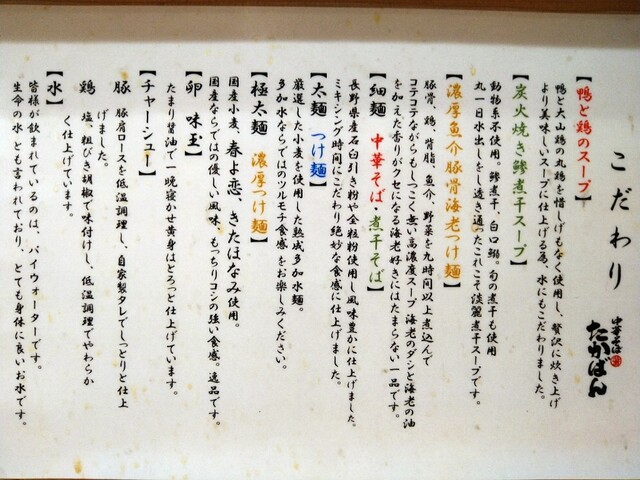 こだわり
中華そば
たかばん
【鴨と鶏のスープ】
鴨と大山鶏の丸鶏を惜しげもなく使用し、贅沢に炊き上げ
より美味しいスープに仕上げる為、水にもこだわりました。
【炭火焼き鯵煮干スープ】
動物系不使用。鯵煮干、白口鰯。旬の煮干も使用
丸一日水出しをし透き通ったこれこそ淡麗煮干スープです。
【濃厚魚介豚骨海老つけ麺】
豚骨、鶏、背脂、魚介、野菜を九時間以上煮込んで
コテコテながらもしつこく無い高濃度スープ 海老のダシと海老の油
を加えた香りがクセになる海老好きにはたまらない一品です。
【細麺 中華そば・煮干そば】
長野県産石臼引き粉や全粒粉使用し風味豊かに仕上げました。
ミキシング時間にこだわり絶妙な食感に仕上げました。
【太麺 つけ麺】
厳選した小麦を使用した熟成多加水麺。
多加水ならではのツルモチ食感をお楽しみください。
【極太麺 濃厚つけ麺】
国産小麦、春よ恋、きたほなみ使用。
国産ならではの優しい風味、もっちりコシの強い食感。逸品です。
【卵 味玉】
たまり醤油で一晩寝かせ黄身はとろっと仕上げています。
【チャーシュー】
豚 豚肩ロースを低温調理し、自家製タレでしっとりと仕上
げました。
鶏 塩、粗びき胡椒で味付けし、低温調理でやわらか
く仕上げています。
【水】
皆様が飲まれているのは、パイウォーターです。
生命の水とも言われており、とても身体に良いお水です。